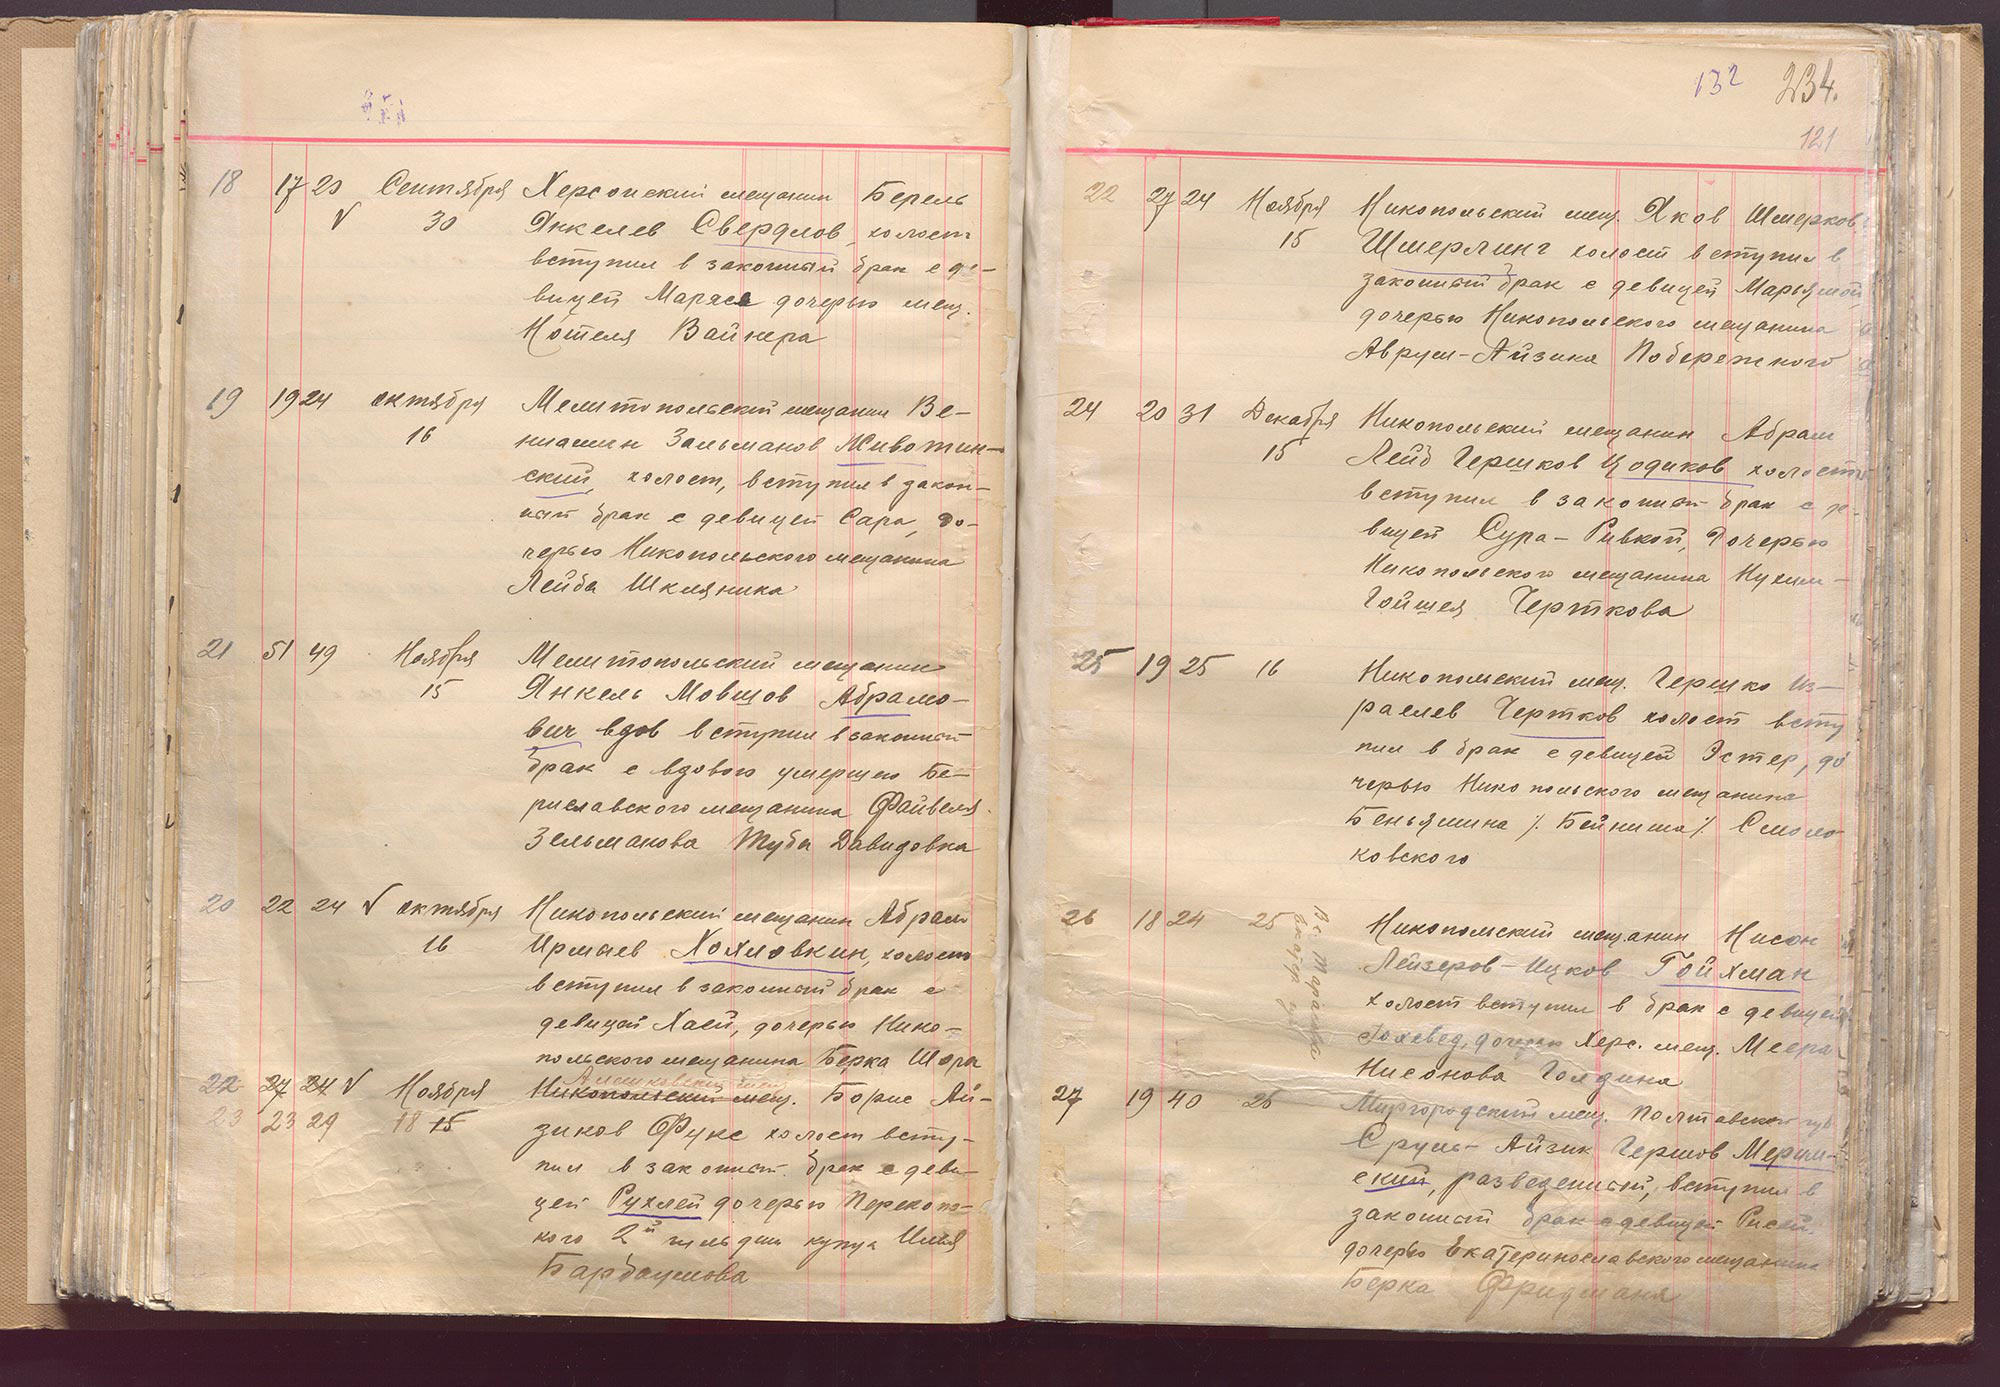 18 17 23 Сентября Херсонский мещанин Берель
√ 30 Янкелев Свердлов, холост
вступил в законный брак с де-
вицей Маряся дочерью мещ.
Нотеля Вайнера
19 19 24 октября Мелитопольский мещанин Ве-
16 ниамин Зальманов Животин-
ский, холост, вступил в закон-
ный брак с девицей Сара, до-
черью Никопольского мещанина
Лейба Шкляника
21 51 49 Ноября Мелитопольский мещанин
15 Янкель Мовшов Абрамо-
вич вдов вступил в законный
брак с вдовою умершего Бе-
риславского мещанина Файвеля
Зельманова Туба Давидовна
20 22 24 √ октября Никопольский мещанин Абрам
16 Ирмыев Хохловкин, холост
вступил в законный брак с
девицей Хаей, дочерью Нико-
польского мещанина Берка Шора
22 27 24 √ Ноября Никопольский мещ. Борис Ай-
23 23 29 18 15 зиков Фукс холост всту-
пил в законный брак с деви-
цей Рухлей дочерью Перекопс-
кого 2й гильдии купца Илья
Барбаумова
132 234.
121
22 27 24 Ноября Никопольский мещ. Яков Шмерков
15 Шмерлинг холост вступил в
законный брак с девицей Марьямой,
дочерью Никопольского мещанина
Аврум-Айзика Побережного
24 20 31 Декабря Никопольский мещанин Абрам
15 Лейб Гершков Цодиков холостъ
вступил в законный брак с де-
вицей Сура-Ривкой, дочерью
Никопольского мещанина Нухим-
Гойшея Черткова
25 19 25 16 Никопольский мещ. Гершко Из-
раелев Чертков холост всту
пил в брак с девицей Эстер, до
черью Никопольского мещанина
Беньямина /. Бейниша /. Смоло
ковского
26 18 24 25 Никопольский мещанин Нисон
Лейзеров-Ицков Гойхман
холост вступил в брак с девицей
Иохевед, дочерью Херс. мещ. Меера
Нисонова Голдина
27 19 40 26 Миргородский мещ. Полтавской губ
Сруль-Айзик Гершов Мерим-
ский, разведенный, вступил в
законный брак с девицей Рисей,
дочерью Екатеринославского мещанина
Берка Фридманя